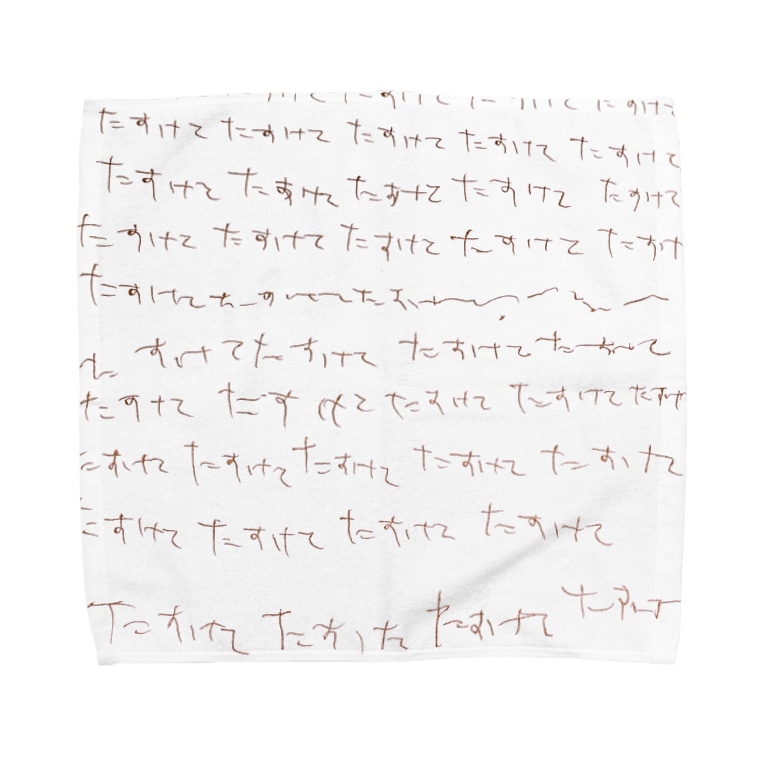 たすけて たすけて たすけて たすけて たすけて
たすけて たすけて たすけて たすけて たすけて
たすけて たすけて たすけて たすけて たすけ
たすけて
すけ てたすけて たすけて
たすけて たす けて たすけて たすけて たすけ
たすけて たすけて たすけて たすけて たすけて
たすけて たすけて たすけて たすけて
たすけて たすけた たすけて